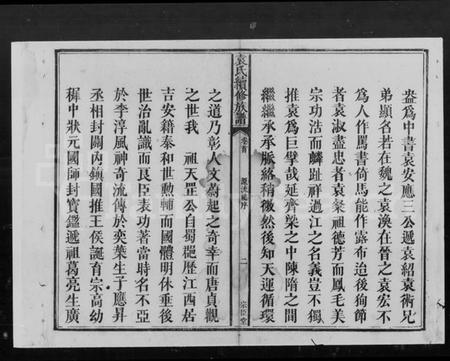 盎爲中書袁安應三公遞袁紹袁術兄
弟顯名若在魏之袁渙在晉之袁宏不
爲人作罵書倚馬能作露布迫後徇節
者袁淑盡忠者袁粲祖德芳而鳳毛美
宗功浩而麟趾祥過江之名義豈不獨
推袁爲巨擘哉延齊梁之中陳隋之間
繼繼承承脈絡稍微然後知天運循環
袁氏續修族譜
卷首
源流總序
二
宗臣堂
之道乃彰人文蔚起之奇幸而唐貞觀
之世我 祖天罡公自蜀觀歷江西居
吉安籍泰和世勲輔而國體明休垂後
世治亂識而民臣表功著當時名不亞
於李淳風神奇流傳於奕葉生子應昇
丞相封關內鎮國推王侯誕育宗高幼
穉中狀元國師封寶鑑遞祖葛亮生廣